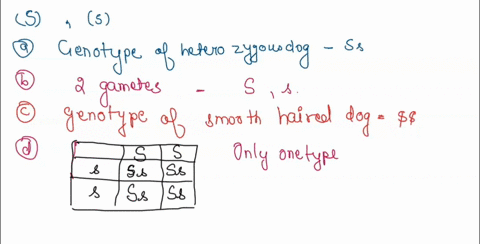 (S) , (s)
(a) Genotype of heterozygous dog - Ss
(b) 2 gametes - S, s.
(c) Genotype of smooth haired dog = $$
(d) S S Only one type
s Ss Ss
s Ss Ss